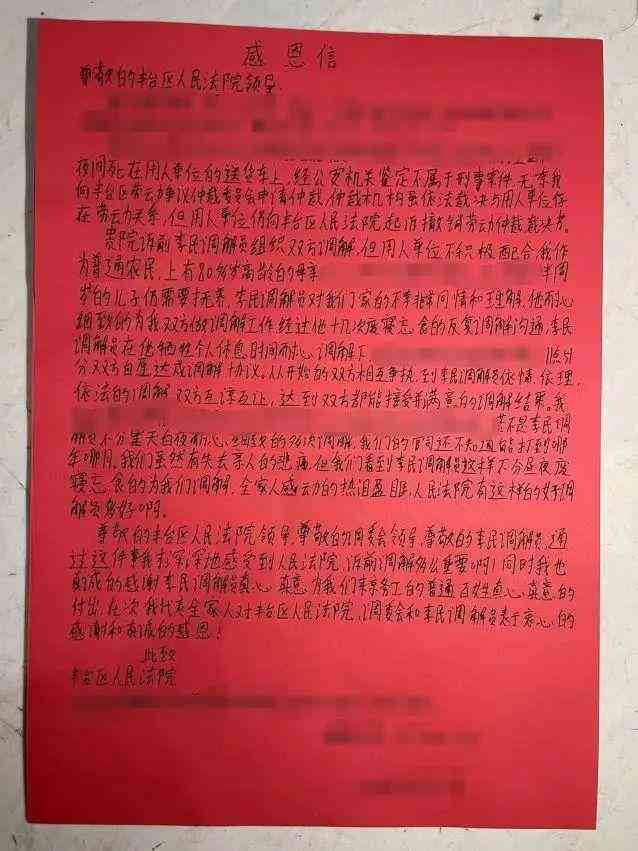 感恩信
尊敬的丰台区人民法院领导.
夜间死在用人单位的送货车上,经公安机关鉴定不属于刑事案件,无奈我
向丰台区劳动争议仲裁委员会申请仲裁,仲裁机构虽依法裁决与用人单位存
在劳动关系,但用人单位仍向丰台区人民法院起诉撤销劳动仲裁裁决书。
贵院诉前李民调解员组织双方调解,但用人单位不积极配合,我作
为普通农民,上有80多岁高龄的母亲 半周
岁的儿子仍需要扶养,李民调解员对我们家的不幸非常同情和理解,他耐心
细致的为我双方做调解工作,经过他十几次废寝忘食的反复调解沟通,李民
调解员在他牺牲个人休息时间耐心调解下 11点51
分双方自愿达成调解协议。从开始的双方相互争执,到李民调解员依情、依理,
依法的调解,双方互谅互让,达到双方都能接受和满意的调解结果。我
若不是李民调
解员不分星天白夜耐心细致的多次调解,我们的官司还不知道能打到哪
年哪月,我们虽然有失去亲人的悲痛,但我们看到李民调解员这样不分昼夜废
寝忘食的为我们调解,全家人感动的热泪盈眶,人民法院有这样的好调
解员真好啊。
尊敬的丰台区人民法院领导,尊敬的调委会领导,尊敬的李民调解员,通
过这件事我才深深地感受到人民法院,诉前调解多么重要啊!同时我也
真诚的感谢李民调解员真心真意为我们来京务工的普通百姓真心真意的
付出,在次我代表全家人对丰台区人民法院,调委会和李民调解员表示衷心的
感谢和真诚的感恩!
此致
丰台区人民法院